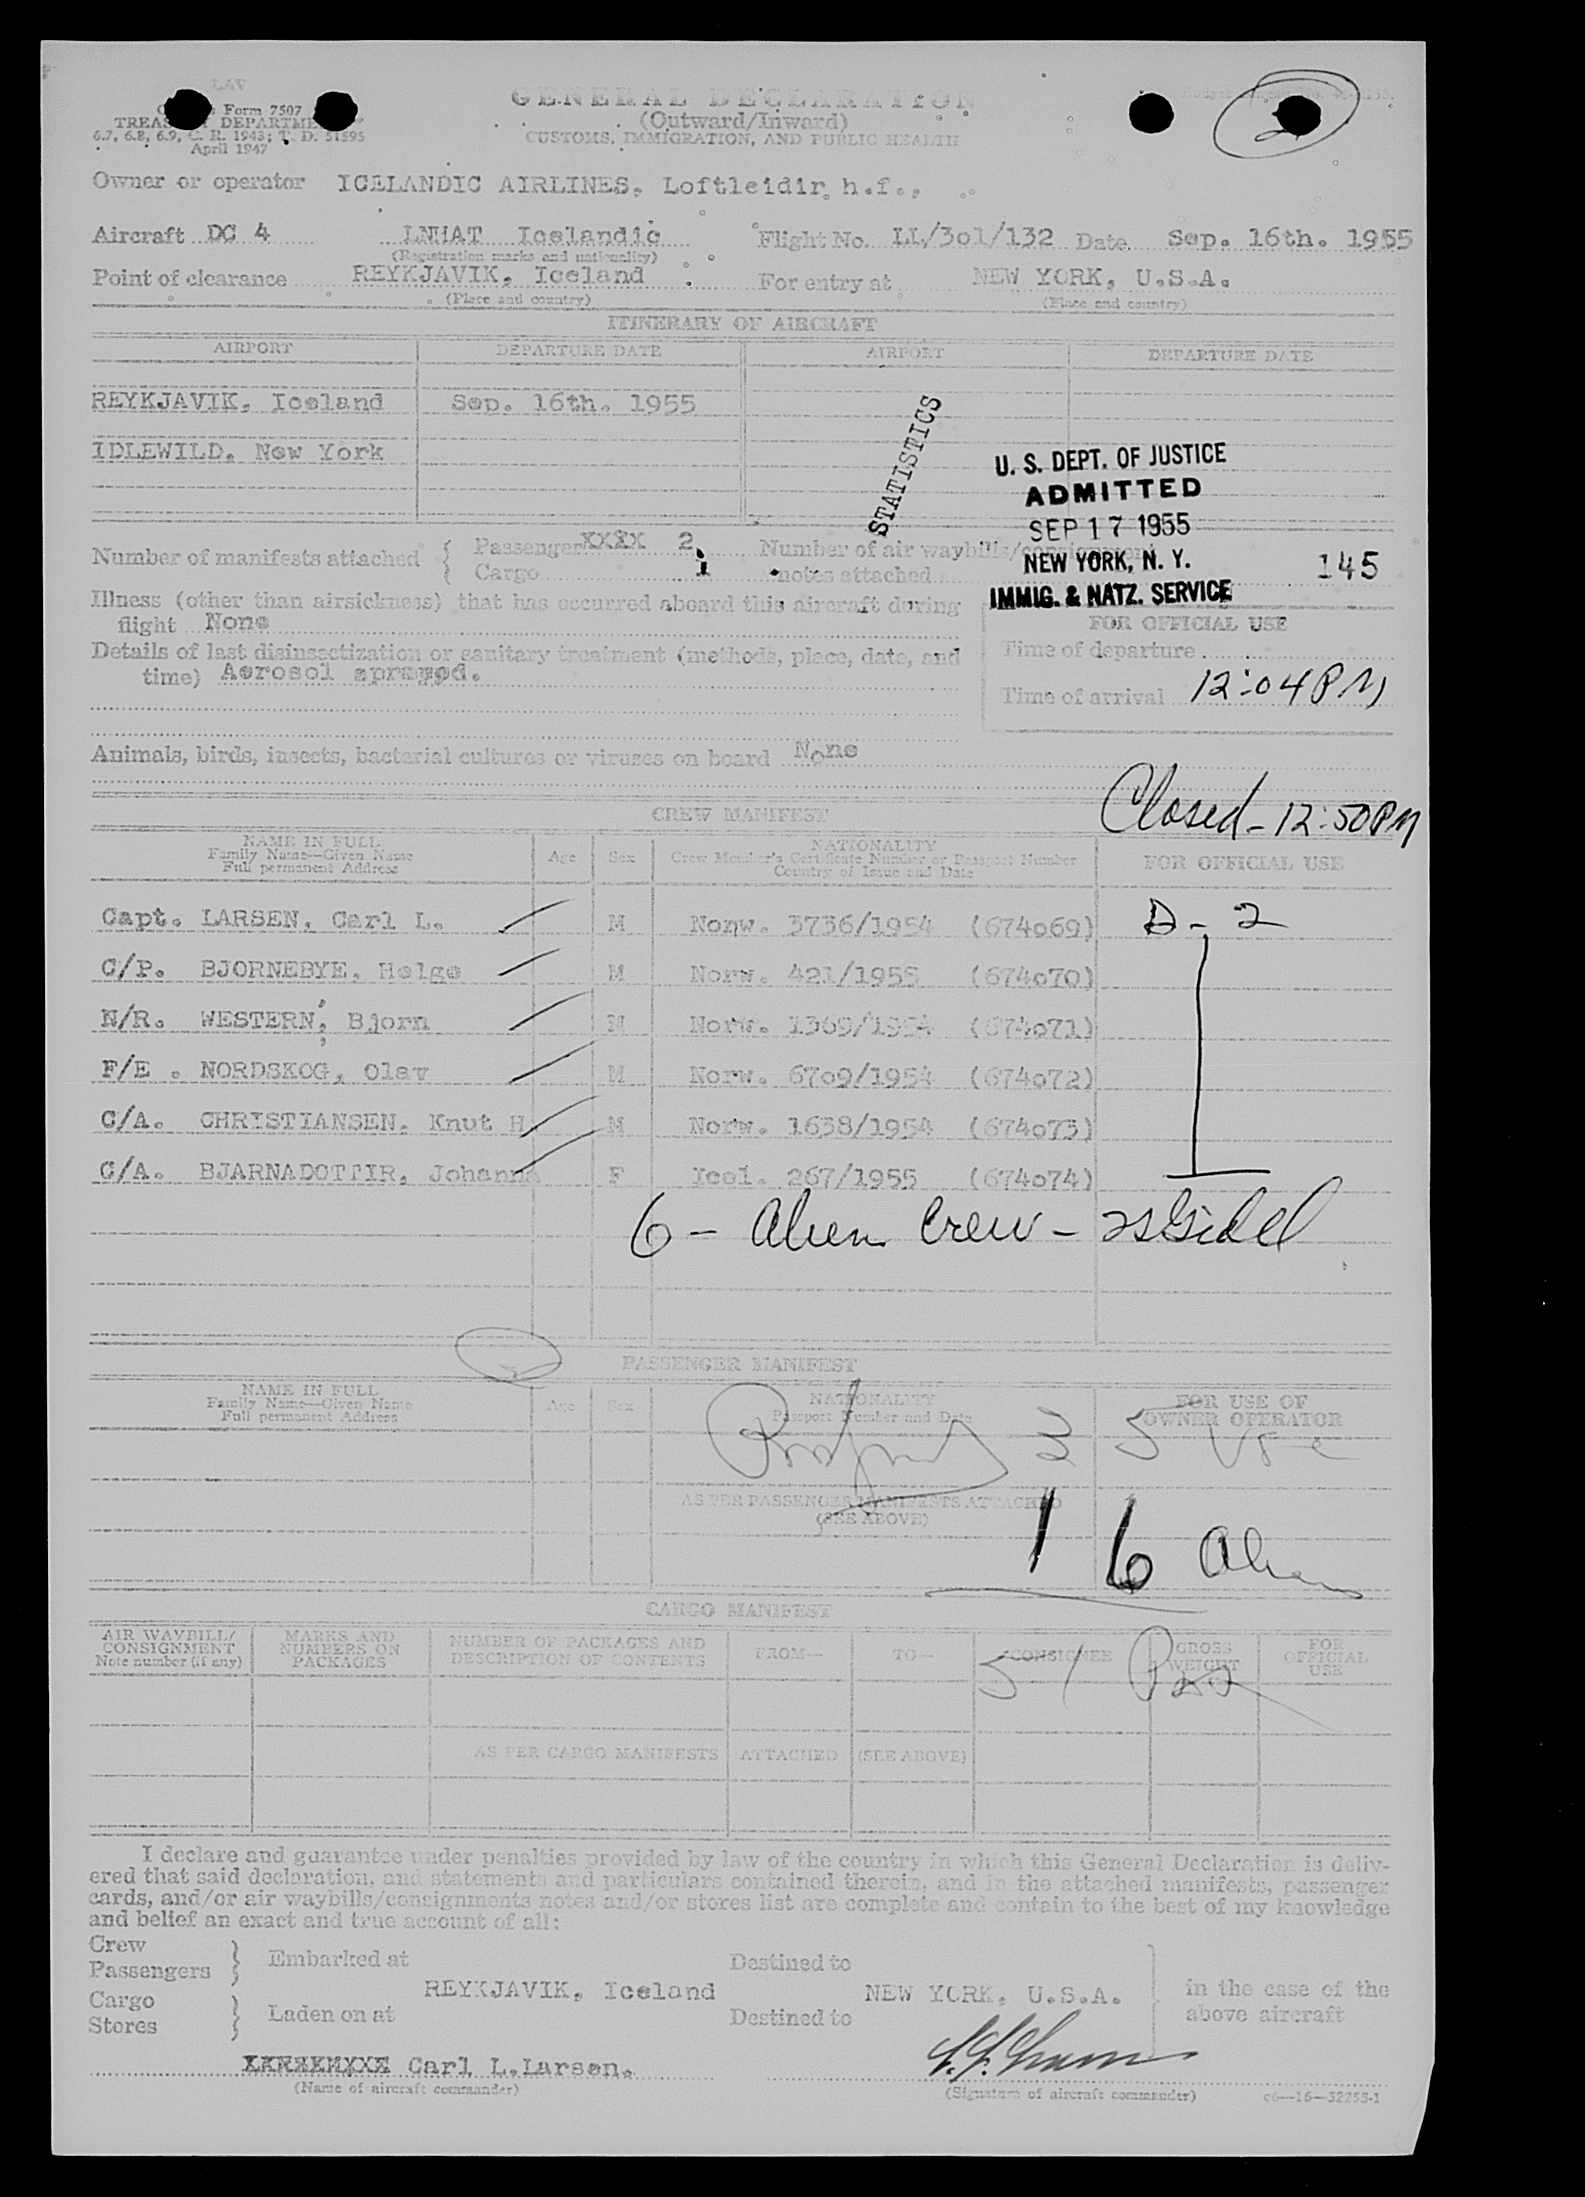 LAV
Form 7507
TREASURY DEPARTMENT
6.7, 6.8, 6.9, C. R. 1943; T. D. 51595
April 1947
GENERAL DECLARATION
(Outward/Inward)
CUSTOMS, IMMIGRATION, AND PUBLIC HEALTH
2
Owner or operator ICELANDIC AIRLINES, Loftleidir h.f.,
Aircraft DC 4 LNHAT Icelandic Flight No. LL/3o1/132 Date Sep. 16th. 1955
(Registration marks and nationality)
Point of clearance REYKJAVIK, Iceland For entry at NEW YORK, U.S.A.
(Place and country) (Place and country)
ITINERARY OF AIRCRAFT
AIRPORT DEPARTURE DATE AIRPORT DEPARTURE DATE
REYKJAVIK, Iceland Sep. 16th. 1955
IDLEWILD, New York
STATISTICS
U. S. DEPT. OF JUSTICE
ADMITTED
SEP 17 1955
NEW YORK, N. Y.
IMMIG. & NATZ. SERVICE
Number of manifests attached { Passenger XXXX 2 Number of air waybills/consignment
Cargo 1 notes attached 145
Illness (other than airsickness) that has occurred aboard this aircraft during
flight None
FOR OFFICIAL USE
Details of last disinsectization or sanitary treatment (methods, place, date, and
time) Aerosol sprayed.
Time of departure
Time of arrival 12:04 PM
Animals, birds, insects, bacterial cultures or viruses on board None
Closed - 12:50 PM
CREW MANIFEST
NAME IN FULL
Family Name—Given Name
Full permanent Address
Age Sex
NATIONALITY
Crew Member's Certificate Number or Passport Number
Country of Issue and Date
FOR OFFICIAL USE
Capt. LARSEN, Carl L. M Norw. 3736/1954 (674o69) D - 2
C/P. BJORNEBYE, Helge M Norw. 421/1955 (674o70)
N/R. WESTERN, Bjorn M Norw. 1369/1954 (674o71)
F/E . NORDSKOG, Olav M Norw. 67o9/1954 (674o72)
C/A. CHRISTIANSEN, Knut H M Norw. 1638/1954 (674o73)
C/A. BJARNADOTTIR, Johanna F Icel. 267/1955 (674o74)
6 - Alien Crew -
PASSENGER MANIFEST
NAME IN FULL
Family Name—Given Name
Full permanent Address
Age Sex
NATIONALITY
Passport Number and Date
FOR USE OF
OWNER OPERATOR
3 5
AS PER PASSENGER MANIFESTS ATTACHED
(SEE ABOVE)
1 6 Alien
CARGO MANIFEST
AIR WAYBILL/
CONSIGNMENT
Note number (if any)
MARKS AND
NUMBERS ON
PACKAGES
NUMBER OF PACKAGES AND
DESCRIPTION OF CONTENTS
FROM— TO— CONSIGNEE
GROSS
WEIGHT
FOR
OFFICIAL
USE
51 Pax
AS PER CARGO MANIFESTS ATTACHED (SEE ABOVE)
I declare and guarantee under penalties provided by law of the country in which this General Declaration is deliv-
ered that said declaration, and statements and particulars contained therein, and in the attached manifests, passenger
cards, and/or air waybills/consignments notes and/or stores list are complete and contain to the best of my knowledge
and belief an exact and true account of all:
Crew
Passengers } Embarked at Destined to
REYKJAVIK, Iceland NEW YORK, U.S.A. in the case of the
Cargo
Stores } Laden on at Destined to above aircraft
Carl L.Larsen.
(Name of aircraft commander) (Signature of aircraft commander) c6—16—52255-1